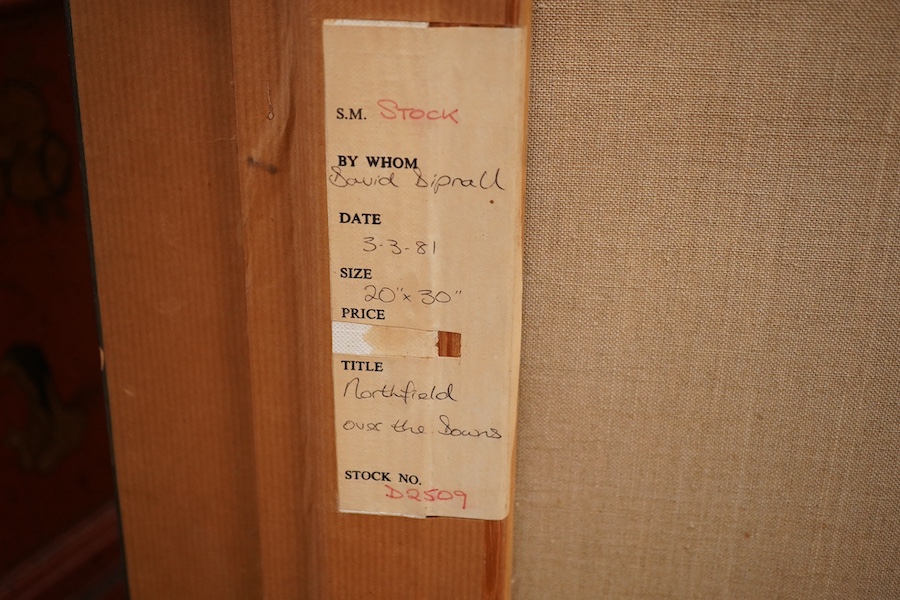 S.M. STOCK
BY WHOM
David Dipnall
DATE
3-3-81
SIZE
20" x 30"
PRICE
TITLE
Northfield
over the Downs
STOCK NO.
D2509